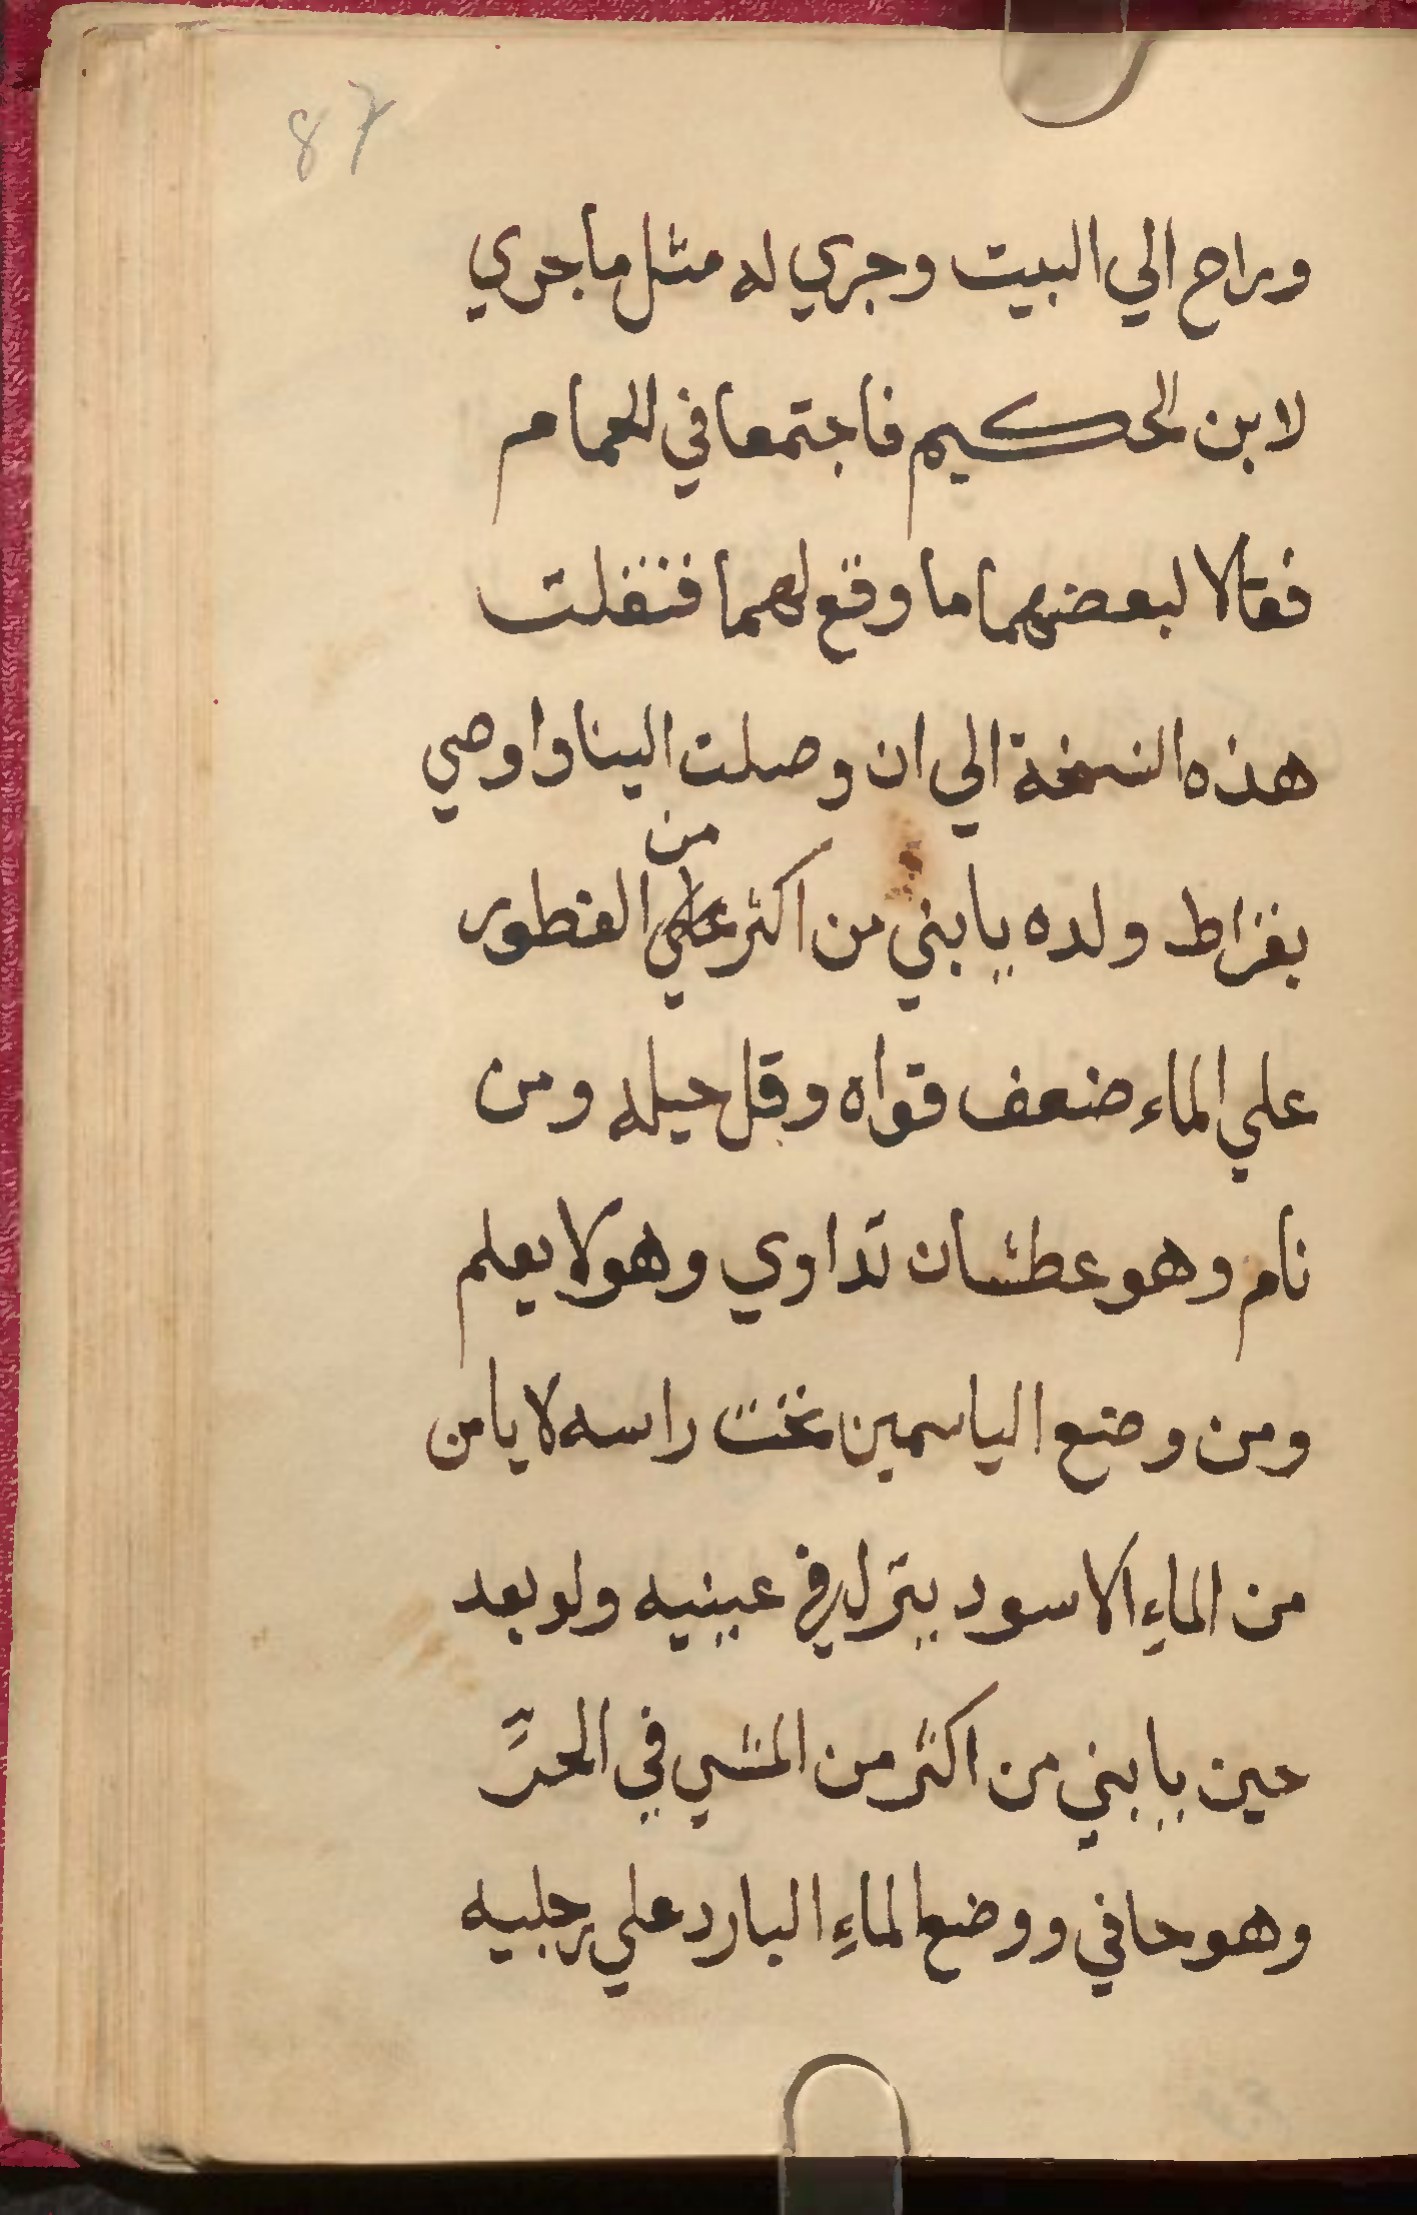 87
وراح الي البيت وجري له مثل ما جري
لابن الحكيم فاجتمعا في الحمام
فقالا لبعضهما ما وقع لهما فنقلت
هذه النسخة الي ان وصلت الينا واوصي
بقراط ولده يا بني من اكثر من الفطور
علي الماء ضعف قواه وقل حيله ومن
نام وهو عطشان تداوي وهو لا يعلم
ومن وضع الياسمين تحت راسه لا يامن
من الماءِ الاسود ينزل في عينيه ولو بعد
حين يا بني من اكثر من المشي في الحرِّ
وهو حافي ووضع الماءِ البارد علي رجليه